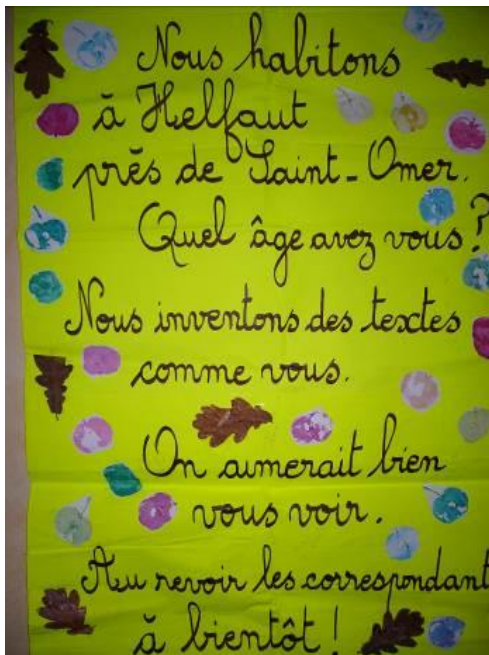 Nous habitons
à Helfaut
près de Saint-Omer.
Quel âge avez vous?
Nous inventons des textes
comme vous.
On aimerait bien
vous voir.
Au revoir les correspondant
à bientôt!